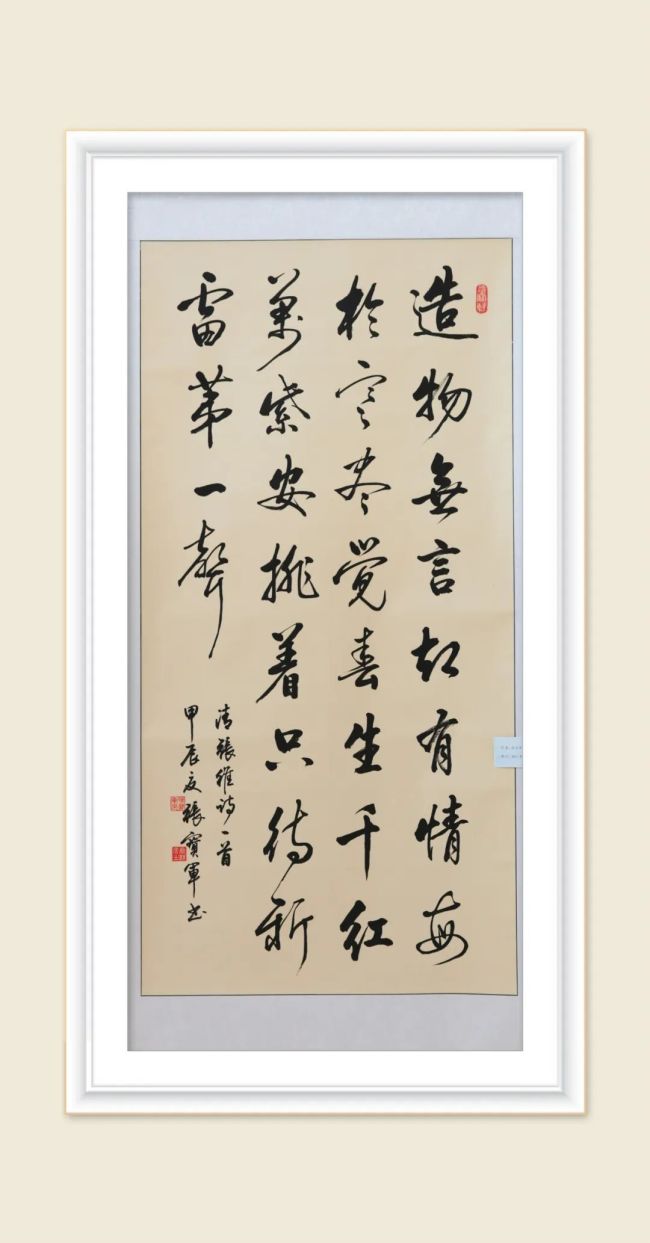 造物無言却有情每
於寒盡覺春生千紅
萬紫安排着只待新
雷苐一聲
清張維詩一首
甲辰夏張寶軍书